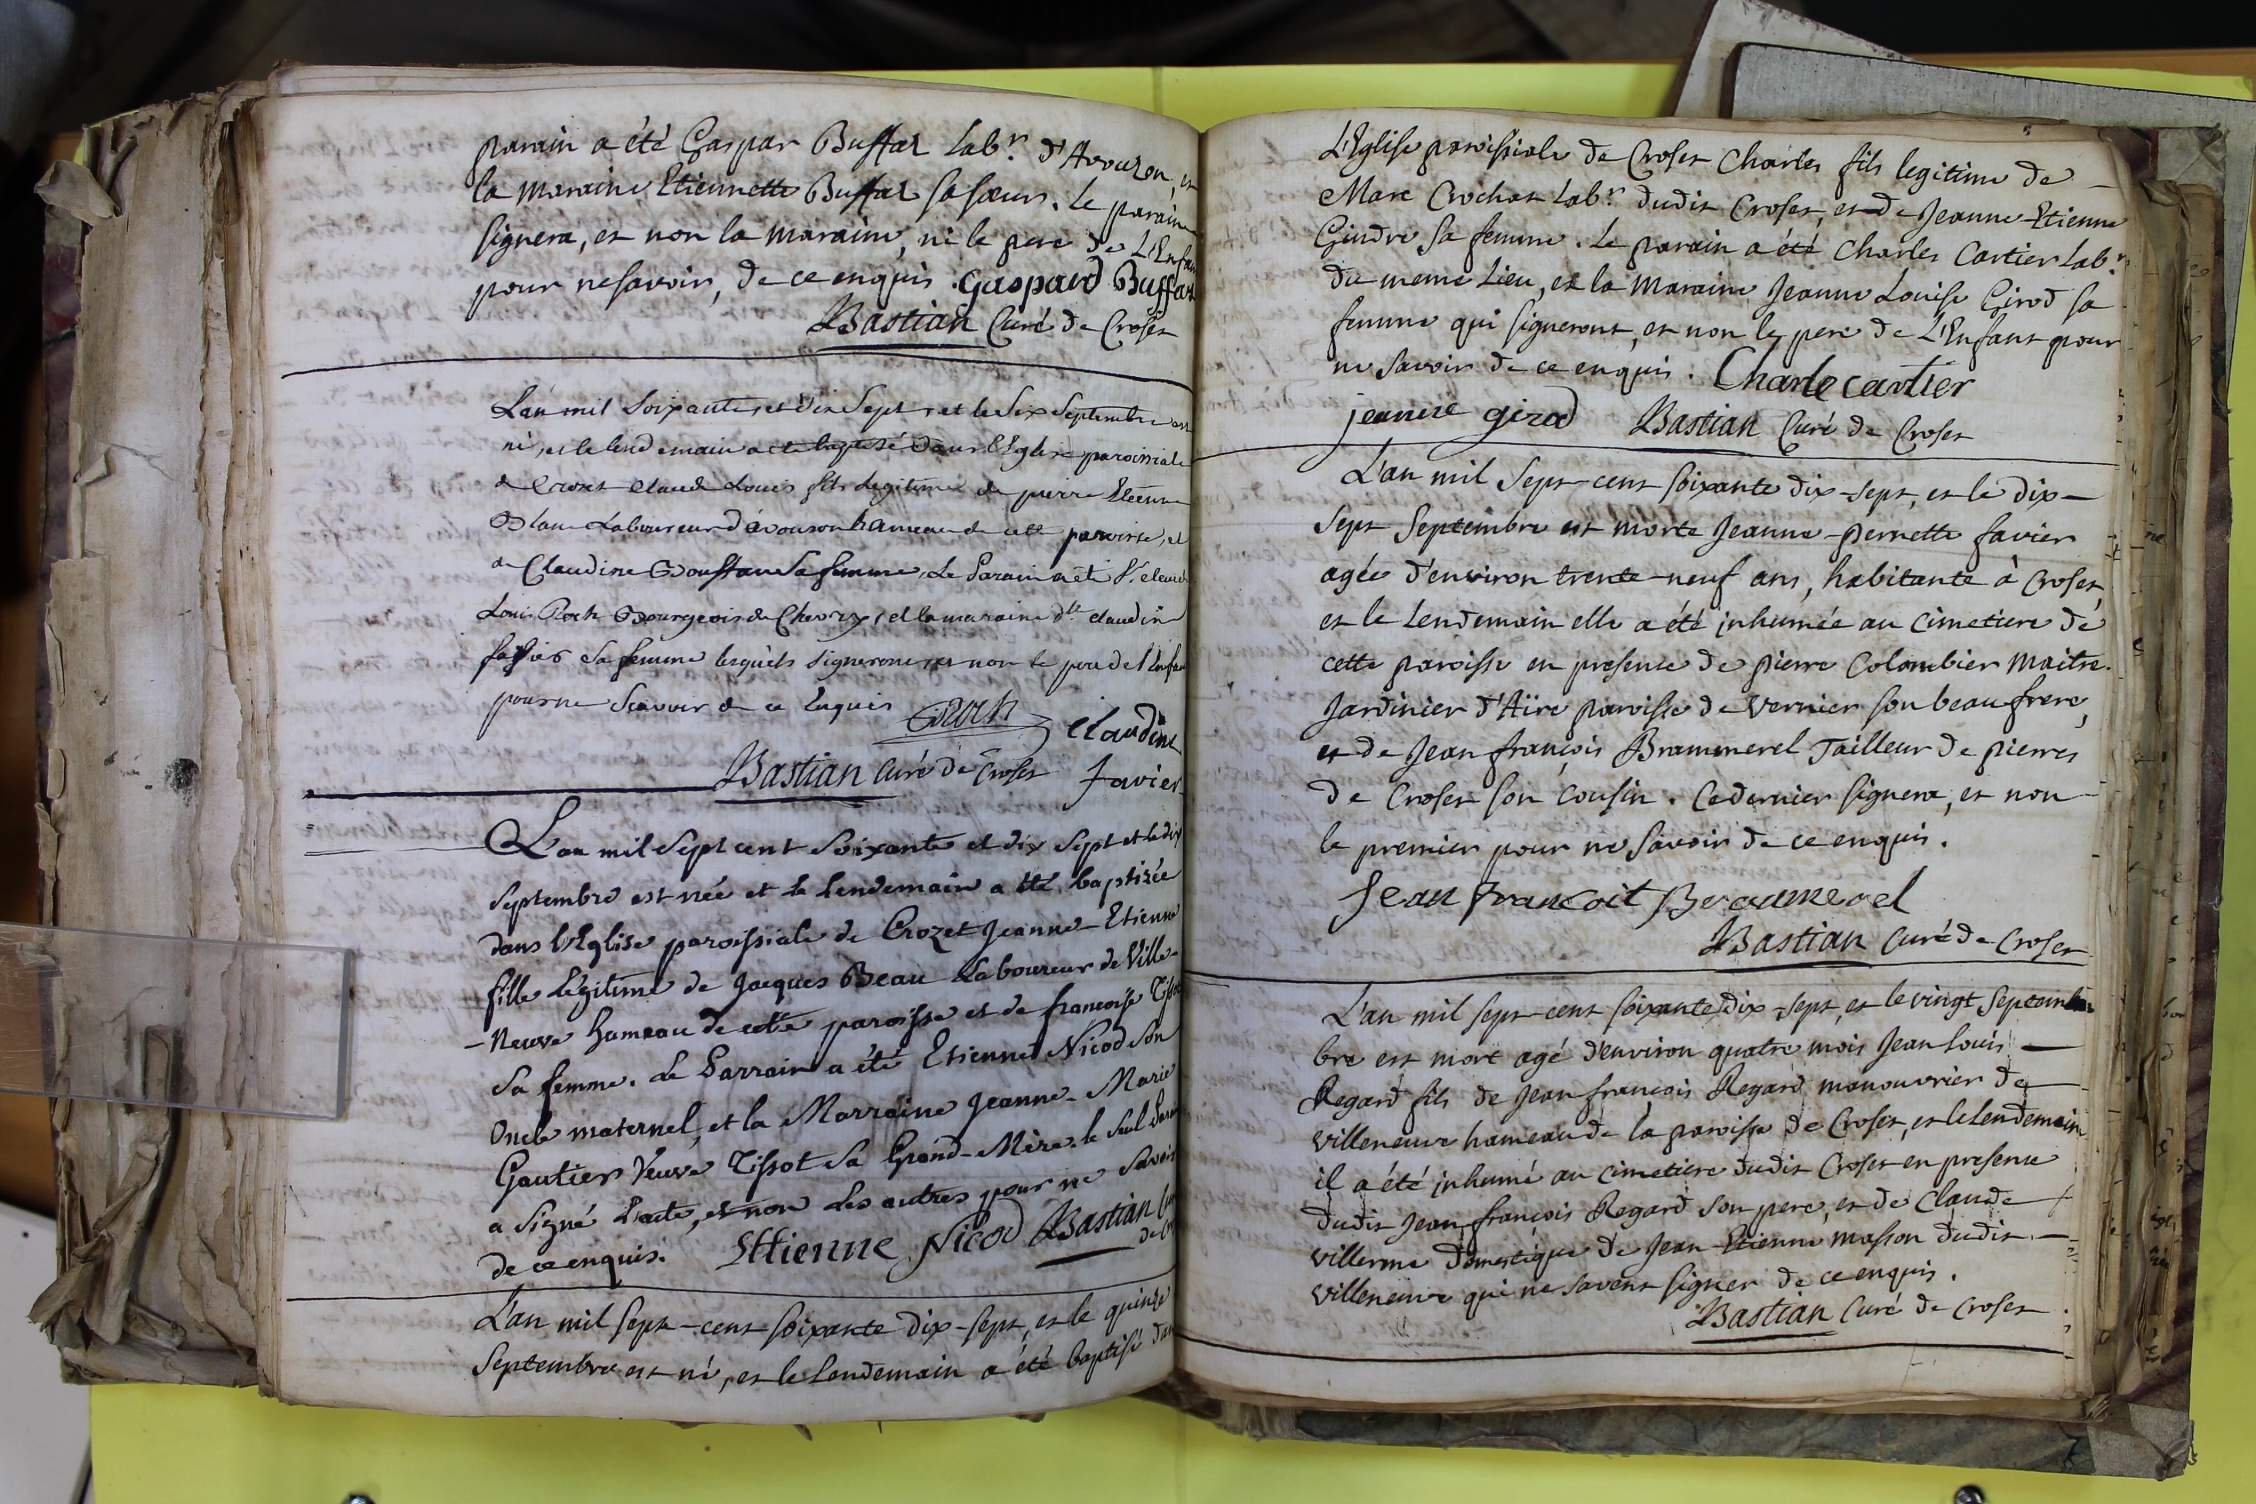 parain a été Gaspar Buffat Lab.r d'Avouzon, et
la maraine Etiennette Buffat sa sœur. Le parain
signera, et non la maraine, ni le pere de L'Enfan
pour ne savoir, de ce enquis. Gaspard Buffat
Bastian Curé de Croset
L'an mil soixante et dix Sept, et le Six Septembre est
né, et le lendemain a eté baptisé dans l'Eglise paroissiale
de Crozet Claude Louis fils Legitime de pierre Etienne
Laboureur d'avouson hameau de cette paroisse, et
de Claudine sa femme, Le Parain a été S.r Claude
Louis Roch Bourgeois de Chevry, et la maraine d.lle Claudine
favier sa femme lesquels signeront et non le pere de l'Enfan
pour ne scavoir de ce Enquis Roch Claudine
Bastian curé de Croset favier
L'an mil sept cent soixante et dix sept et le dix
septembre est née et le lendemain a été baptizée
dans l'Eglise paroissiale de Crozet Jeanne-Etienne
fille légitime de Jacques Beau Laboureur de Ville-
-neuve hameau de cette paroisse et de francoise Tissot
sa femme. Le Parrain a été Etienne Nicod son
Oncle maternel, et la Marraine Jeanne-Marie
Gautier Veuve Tissot sa Grand-Mère. le seul Parain
a signé l'acte, et non les autres pour ne savoir
de ce enquis. Ettienne Nicod Bastian Curé
de Cro
L'an mil sept-cent soixante dix-sept, et le quinze
Septembre est né, et le Lendemain a été baptisé dan
L'Eglise paroissiale de Croset Charles fils legitime de
Marc Crochat Lab.r dudit Croset, et de Jeanne-Etienne
Gindre sa femme. Le parain a été Charles Cartier Lab.r
du meme Lieu, et la Maraine Jeanne Louise Girod sa
femme qui signeront, et non le pere de L'Enfant pour
ne savoir de ce enquis. Charle cartier
jeanne girod Bastian Curé de Croset
L'an mil sept-cent soixante dix-sept, et le dix-
sept Septembre est morte Jeanne-Pernette favier
agée d'environ trente-neuf ans, habitante à Croset,
et le Lendemain elle a été inhumée au cimetiere de
cette paroisse en presence de pierre Colombier maitre
Jardinier d'Aïre paroisse de Vernier son beaufrere,
et de Jean françois Brammerel Tailleur de pierres
de Croset son cousin. Ce dernier signera, et non
le premier pour ne savoir de ce enquis.
Jean francoit Bramerel
Bastian curé de Croset
L'an mil sept-cent soixante dix-sept, et le vingt Septem
bre est mort agé d'environ quatre mois Jean Louis
Regard fils de Jean françois Regard manouvrier de
villeneuve hameau de la paroisse de Croset, et le Lendemain
il a été inhumé au cimetiere dudit Croset en presence
dudit Jean françois Regard son pere, et de Claude
villerme domestique de Jean-Etienne masson dudit
villeneuve qui ne savent signer de ce enquis.
Bastian Curé de Croset